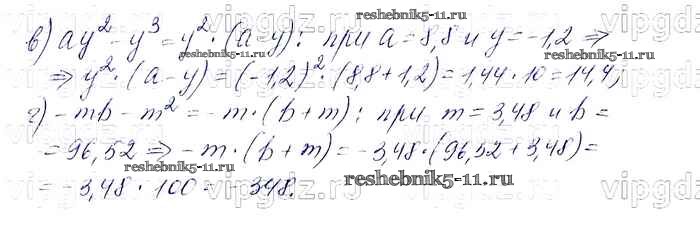 в) ay² - y³ = y² · (a - y); при a = 8,8 и y = -1,2 ⇒
⇒ y² · (a - y) = (-1,2)² · (8,8 + 1,2) = 1,44 · 10 = 14,4;
г) - mb - m² = - m · (b + m); при m = 3,48 и b =
= 96,52 ⇒ - m · (b + m) = - 3,48 · (96,52 + 3,48) =
= - 3,48 · 100 = - 348.
reshebnik5-11.ru
reshebnik5-11.ru
reshebnik5-11.ru
reshebnik5-11.ru
vipgdz.ru